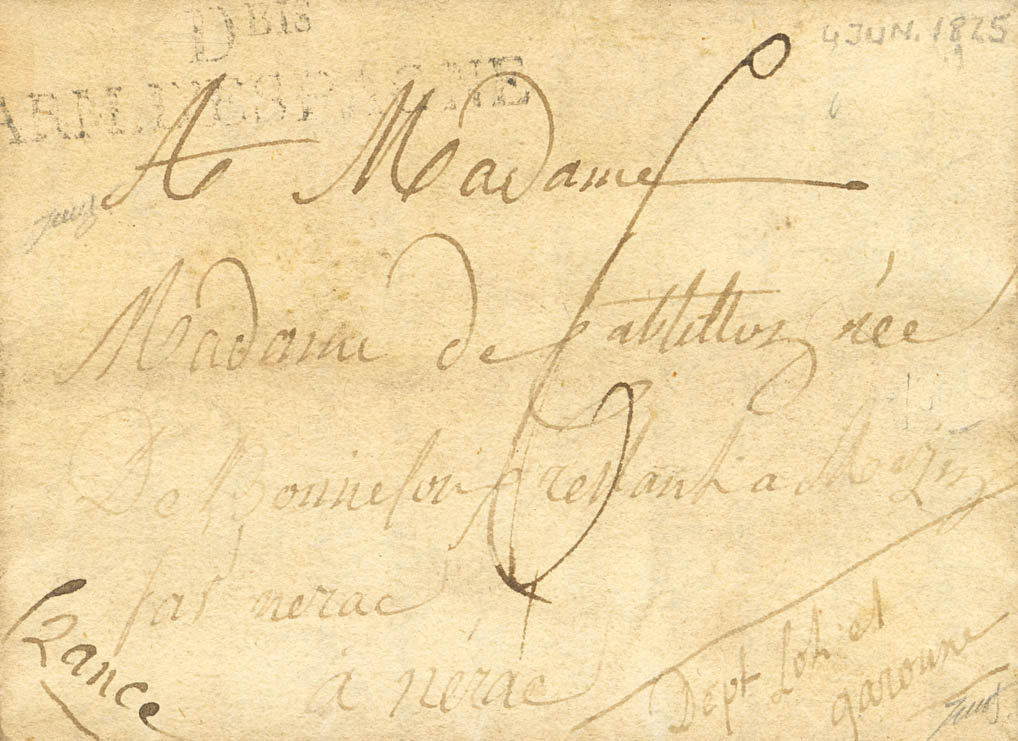 D BIS
ARM. D'ESPAGNE
4 JUN. 1825
A Madame
Madame de née
De Bonnefoux restant a Mezin
par nerac
à nérac
france
Dept Lot et
garonne